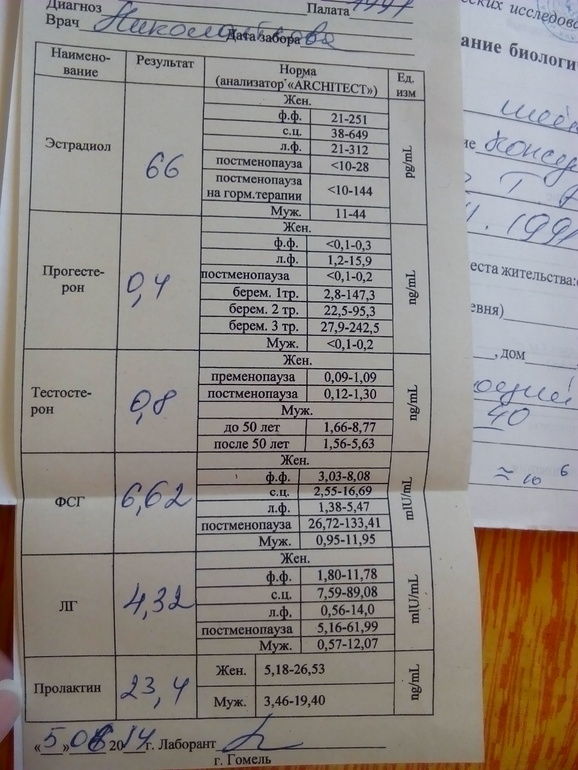 Диагноз Палата
Врач Николайкова
Дата забора
Наимено-
вание
Результат
Норма
(анализатор «ARCHITECT»)
Ед.
изм
Эстрадиол
66
Жен.
ф.ф. 21-251
с.ц. 38-649
л.ф. 21-312
постменопауза <10-28
постменопауза
на горм.терапии <10-144
Муж. 11-44
pg/mL
Прогесте-
рон
0,4
Жен.
ф.ф. <0,1-0,3
л.ф. 1,2-15,9
постменопауза <0,1-0,2
берем. 1тр. 2,8-147,3
берем. 2 тр. 22,5-95,3
берем. 3 тр. 27,9-242,5
Муж. <0,1-0,2
ng/mL
Тестосте-
рон
0,8
Жен.
пременопауза 0,09-1,09
постменопауза 0,12-1,30
Муж.
до 50 лет 1,66-8,77
после 50 лет 1,56-5,63
ng/mL
ФСГ
6,62
Жен.
ф.ф. 3,03-8,08
с.ц. 2,55-16,69
л.ф. 1,38-5,47
постменопауза 26,72-133,41
Муж. 0,95-11,95
mIU/mL
ЛГ
4,32
Жен.
ф.ф. 1,80-11,78
с.ц. 7,59-89,08
л.ф. 0,56-14,0
постменопауза 5,16-61,99
Муж. 0,57-12,07
mIU/mL
Пролактин
23,4
Жен. 5,18-26,53
Муж. 3,46-19,40
ng/mL
«5» 06 2014г. Лаборант
г. Гомель
еских исследова
ание биологич
еста жительства:
евня)
, дом
40
≈ 10 6